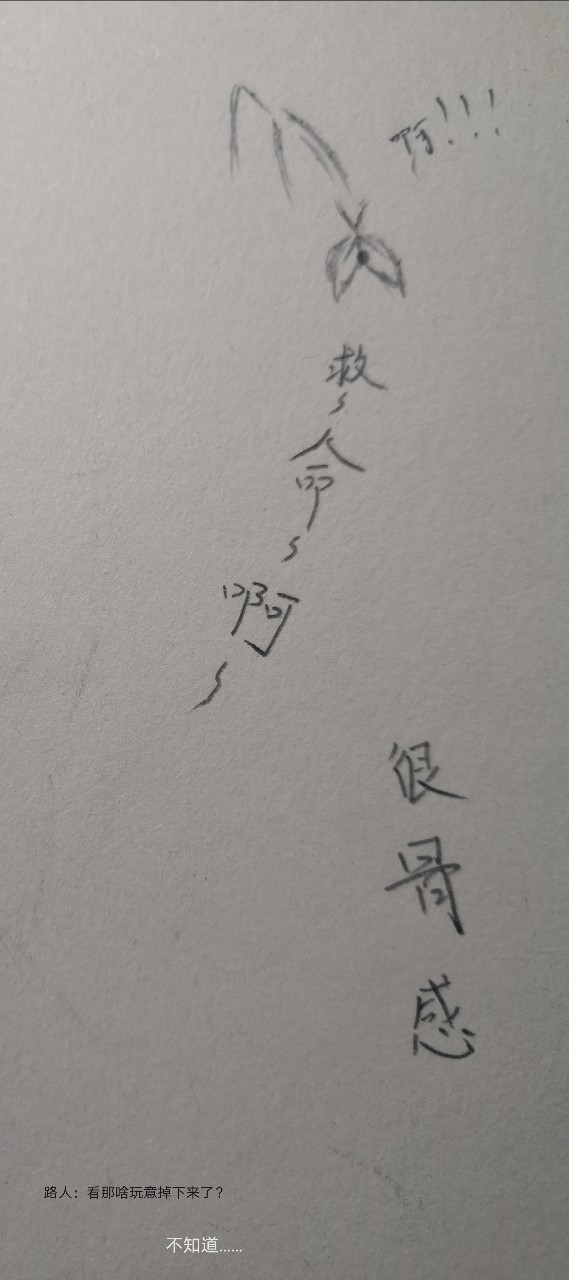 啊!!!
救
命
啊
很
骨
感
路人：看那啥玩意掉下来了？
不知道……